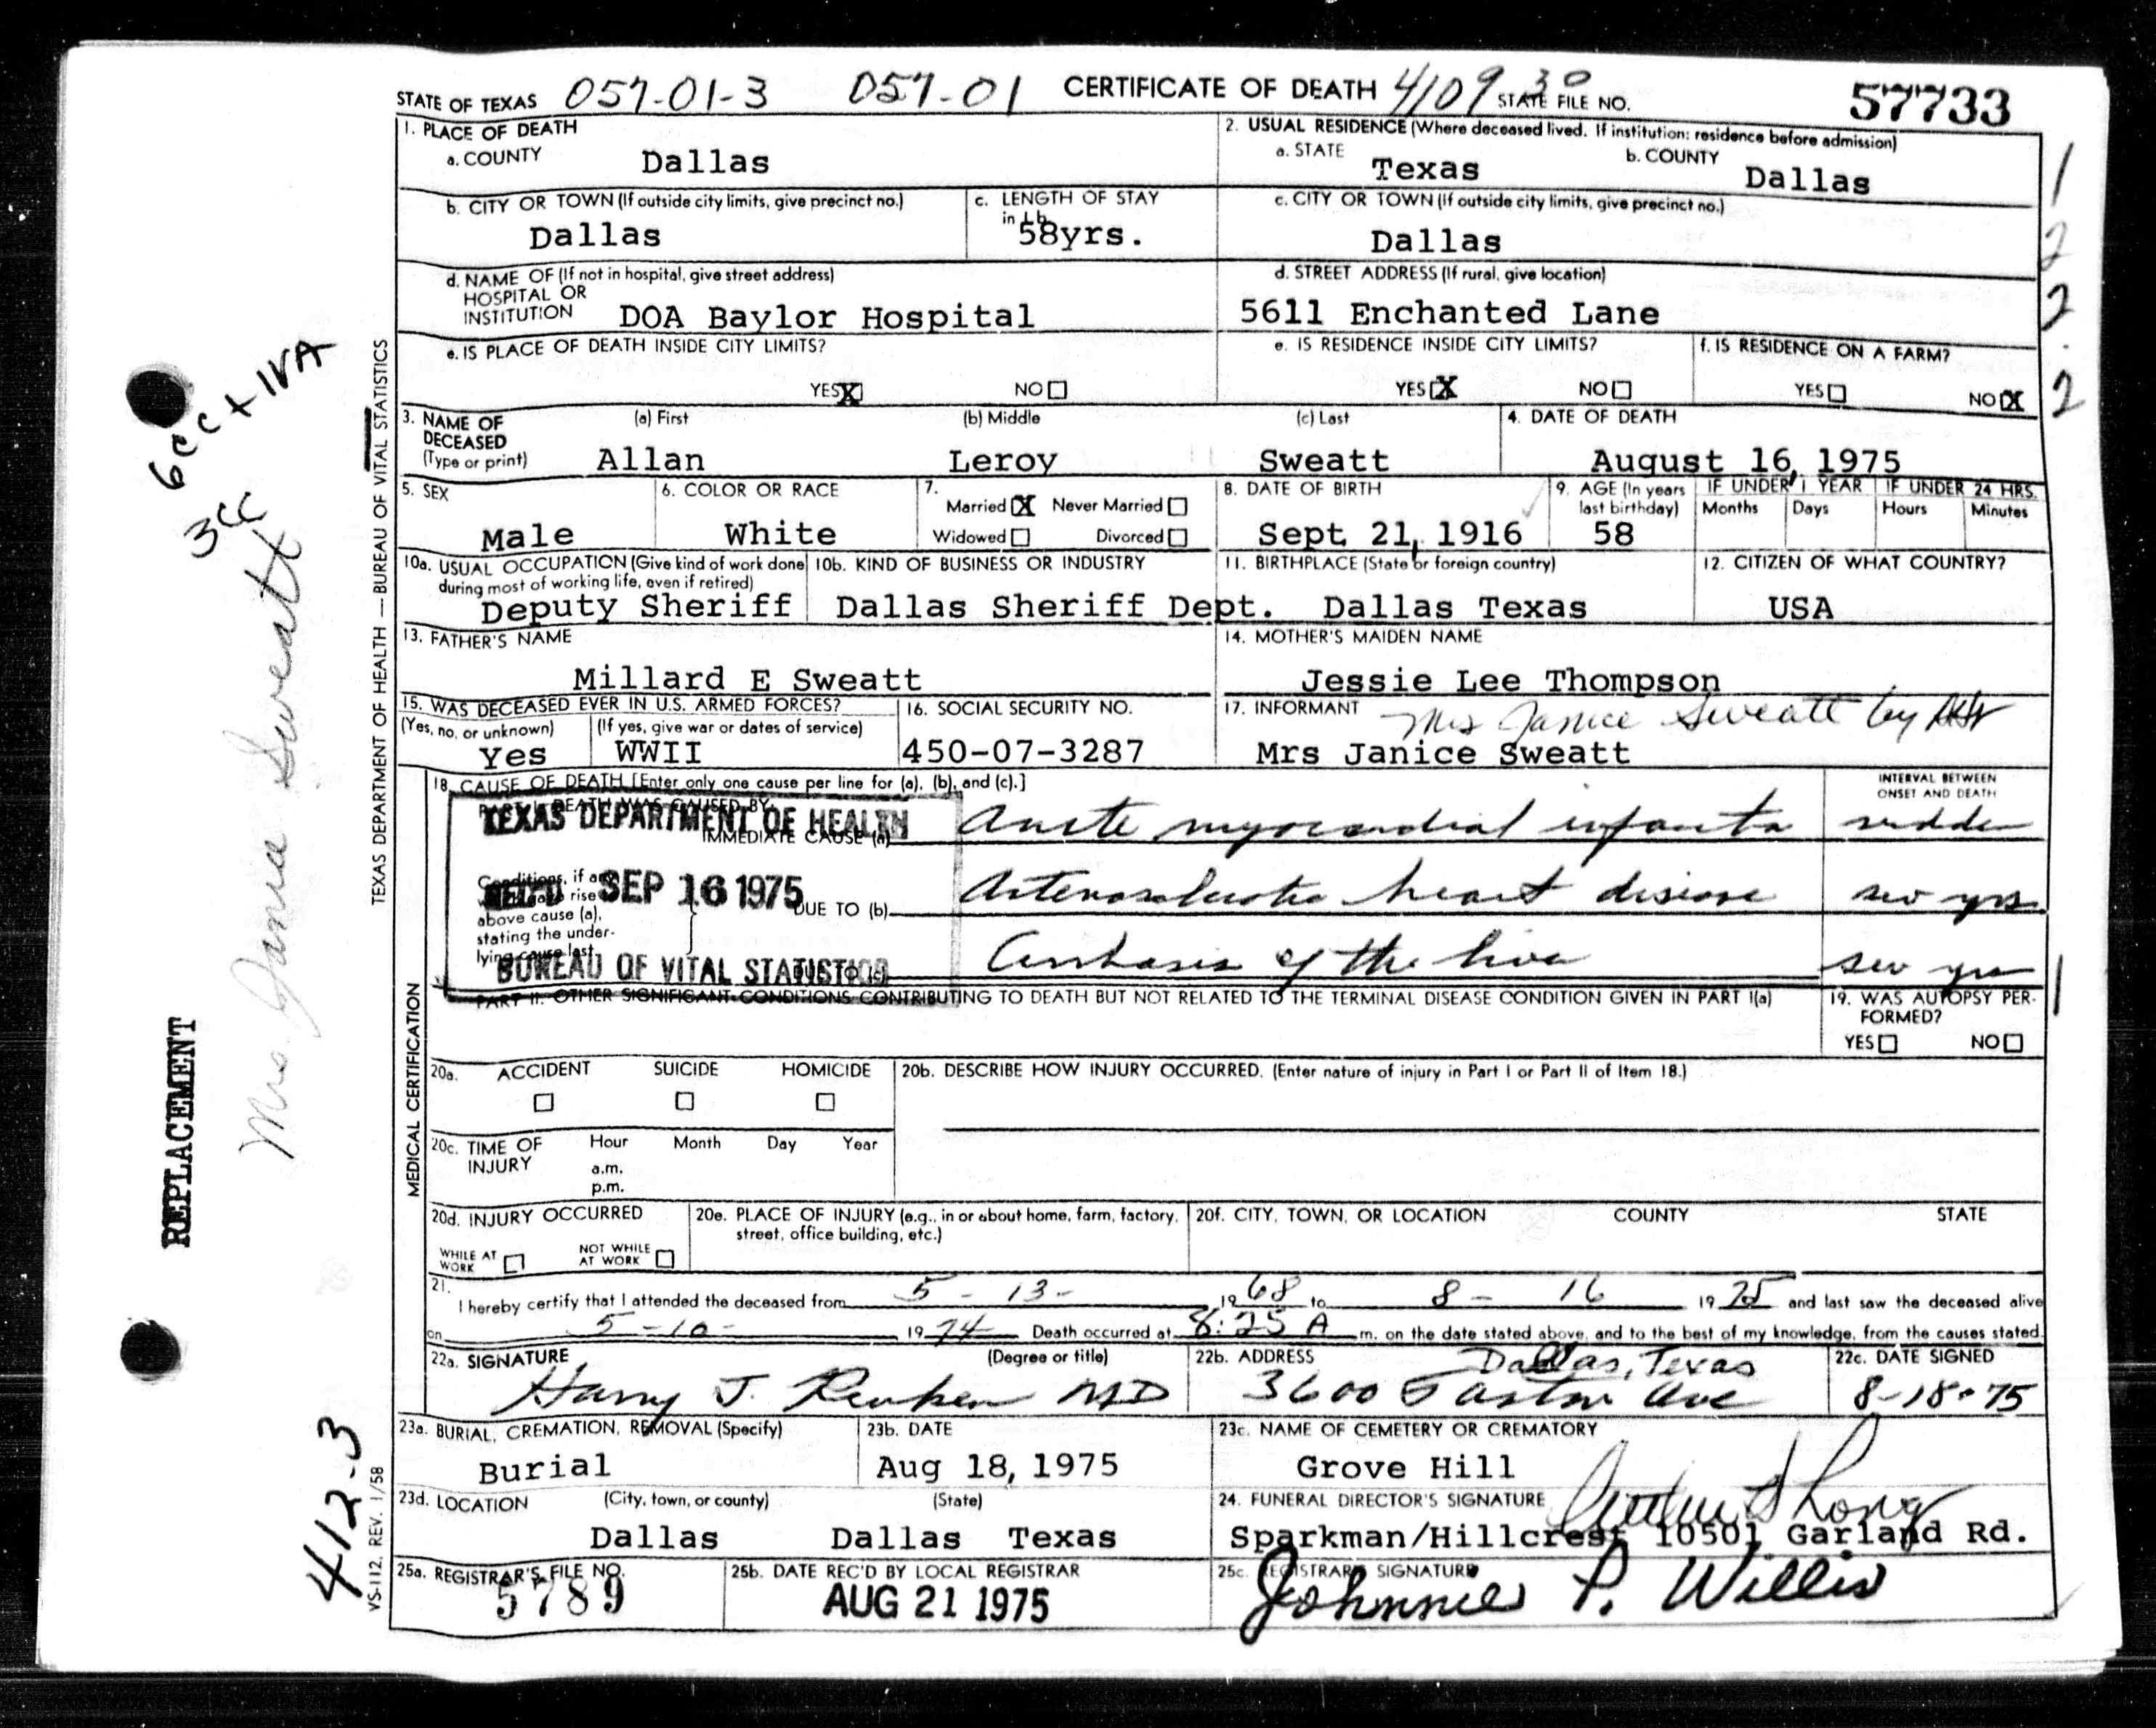 STATE OF TEXAS 057-01-3 057-01 CERTIFICATE OF DEATH 4109 30 STATE FILE NO. 57733
1. PLACE OF DEATH
a. COUNTY Dallas
2. USUAL RESIDENCE (Where deceased lived. If institution: residence before admission)
a. STATE Texas b. COUNTY Dallas
b. CITY OR TOWN (If outside city limits, give precinct no.) Dallas
c. LENGTH OF STAY in 1b 58yrs.
c. CITY OR TOWN (If outside city limits, give precinct no.) Dallas
d. NAME OF (If not in hospital, give street address)
HOSPITAL OR
INSTITUTION DOA Baylor Hospital
d. STREET ADDRESS (If rural, give location)
5611 Enchanted Lane
e. IS PLACE OF DEATH INSIDE CITY LIMITS?
YES X NO
e. IS RESIDENCE INSIDE CITY LIMITS?
YES X NO
f. IS RESIDENCE ON A FARM?
YES NO X
1
2
2
2
3. NAME OF DECEASED (Type or print)
(a) First (b) Middle (c) Last
Allan Leroy Sweatt
4. DATE OF DEATH
August 16, 1975
5. SEX
Male
6. COLOR OR RACE
White
7.
Married X Never Married
Widowed Divorced
8. DATE OF BIRTH
Sept. 21, 1916
9. AGE (In years last birthday)
58
IF UNDER 1 YEAR IF UNDER 24 HRS.
Months Days Hours Minutes
10a. USUAL OCCUPATION (Give kind of work done during most of working life, even if retired)
Deputy Sheriff
10b. KIND OF BUSINESS OR INDUSTRY
Dallas Sheriff Dept.
11. BIRTHPLACE (State or foreign country)
Dallas Texas
12. CITIZEN OF WHAT COUNTRY?
USA
13. FATHER'S NAME
Millard E Sweatt
14. MOTHER'S MAIDEN NAME
Jessie Lee Thompson
15. WAS DECEASED EVER IN U.S. ARMED FORCES?
(Yes, no, or unknown) (If yes, give war or dates of service)
Yes WWII
16. SOCIAL SECURITY NO.
450-07-3287
17. INFORMANT Mrs Janice Sweatt by
Mrs Janice Sweatt
18. CAUSE OF DEATH [Enter only one cause per line for (a), (b), and (c).]
INTERVAL BETWEEN ONSET AND DEATH
PART I. DEATH WAS CAUSED BY:
TEXAS DEPARTMENT OF HEALTH
IMMEDIATE CAUSE (a) Acute myocardial
Conditions, if any, which gave rise to above cause (a), stating the underlying cause last.
REC'D SEP 16 1975
DUE TO (b) heart disease sev yrs.
BUREAU OF VITAL STATISTICS
DUE TO (c) of the sev yrs
1
PART II. OTHER SIGNIFICANT CONDITIONS CONTRIBUTING TO DEATH BUT NOT RELATED TO THE TERMINAL DISEASE CONDITION GIVEN IN PART I(a)
19. WAS AUTOPSY PERFORMED?
YES NO
20a. ACCIDENT SUICIDE HOMICIDE
20b. DESCRIBE HOW INJURY OCCURRED. (Enter nature of injury in Part I or Part II of Item 18.)
20c. TIME OF INJURY Hour Month Day Year
a.m.
p.m.
20d. INJURY OCCURRED
WHILE AT WORK NOT WHILE AT WORK
20e. PLACE OF INJURY (e.g., in or about home, farm, factory, street, office building, etc.)
20f. CITY, TOWN, OR LOCATION COUNTY STATE
21.
I hereby certify that I attended the deceased from 5 - 13 - 19 68 to 8 - 16 19 75 and last saw the deceased alive
on 5-10- 19 74 Death occurred at 8:25 A m. on the date stated above, and to the best of my knowledge, from the causes stated.
22a. SIGNATURE (Degree or title)
Harry J. MD
22b. ADDRESS Dallas, Texas
3600 Gaston Ave
22c. DATE SIGNED
8-18-75
23a. BURIAL, CREMATION, REMOVAL (Specify)
Burial
23b. DATE
Aug 18, 1975
23c. NAME OF CEMETERY OR CREMATORY
Grove Hill
23d. LOCATION (City, town, or county) (State)
Dallas Dallas Texas
24. FUNERAL DIRECTOR'S SIGNATURE Long
Sparkman/Hillcrest 10501 Garland Rd.
25a. REGISTRAR'S FILE NO.
5789
25b. DATE REC'D BY LOCAL REGISTRAR
AUG 21 1975
25c. REGISTRAR'S SIGNATURE
Johnnie P. Willis
TEXAS DEPARTMENT OF HEALTH — BUREAU OF VITAL STATISTICS
MEDICAL CERTIFICATION
VS-112. REV. 1/58
6cc + 1VA
3cc
Mrs. Janice Sweatt
REPLACEMENT
412-3